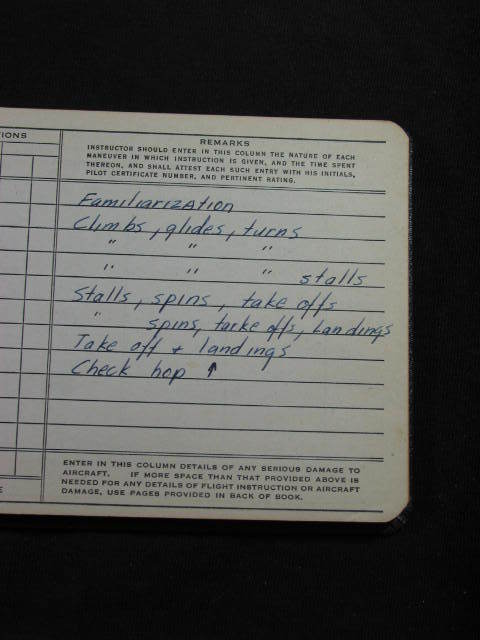 IONS
REMARKS
INSTRUCTOR SHOULD ENTER IN THIS COLUMN THE NATURE OF EACH
MANEUVER IN WHICH INSTRUCTION IS GIVEN, AND THE TIME SPENT
THEREON, AND SHALL ATTEST EACH SUCH ENTRY WITH HIS INITIALS,
PILOT CERTIFICATE NUMBER, AND PERTINENT RATING.
Familiarization
Climbs, glides, turns
" " "
" " " stalls
Stalls, spins, take offs
" spins, take offs, Landings
Take off + landings
Check hop ↑
ENTER IN THIS COLUMN DETAILS OF ANY SERIOUS DAMAGE TO
AIRCRAFT. IF MORE SPACE THAN THAT PROVIDED ABOVE IS
NEEDED FOR ANY DETAILS OF FLIGHT INSTRUCTION OR AIRCRAFT
DAMAGE, USE PAGES PROVIDED IN BACK OF BOOK.
E